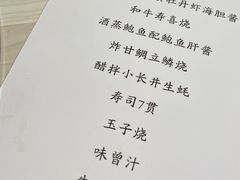 牡丹虾海胆酱
和牛寿喜烧
酒蒸鲍鱼配鲍鱼肝酱
炸甘鲷立鳞烧
醋拌小长井生蚝
寿司7贯
玉子烧
味曾汁